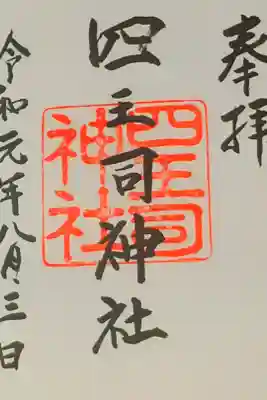 奉拝
四王司神社
四王司
神社
令和元年八月三日